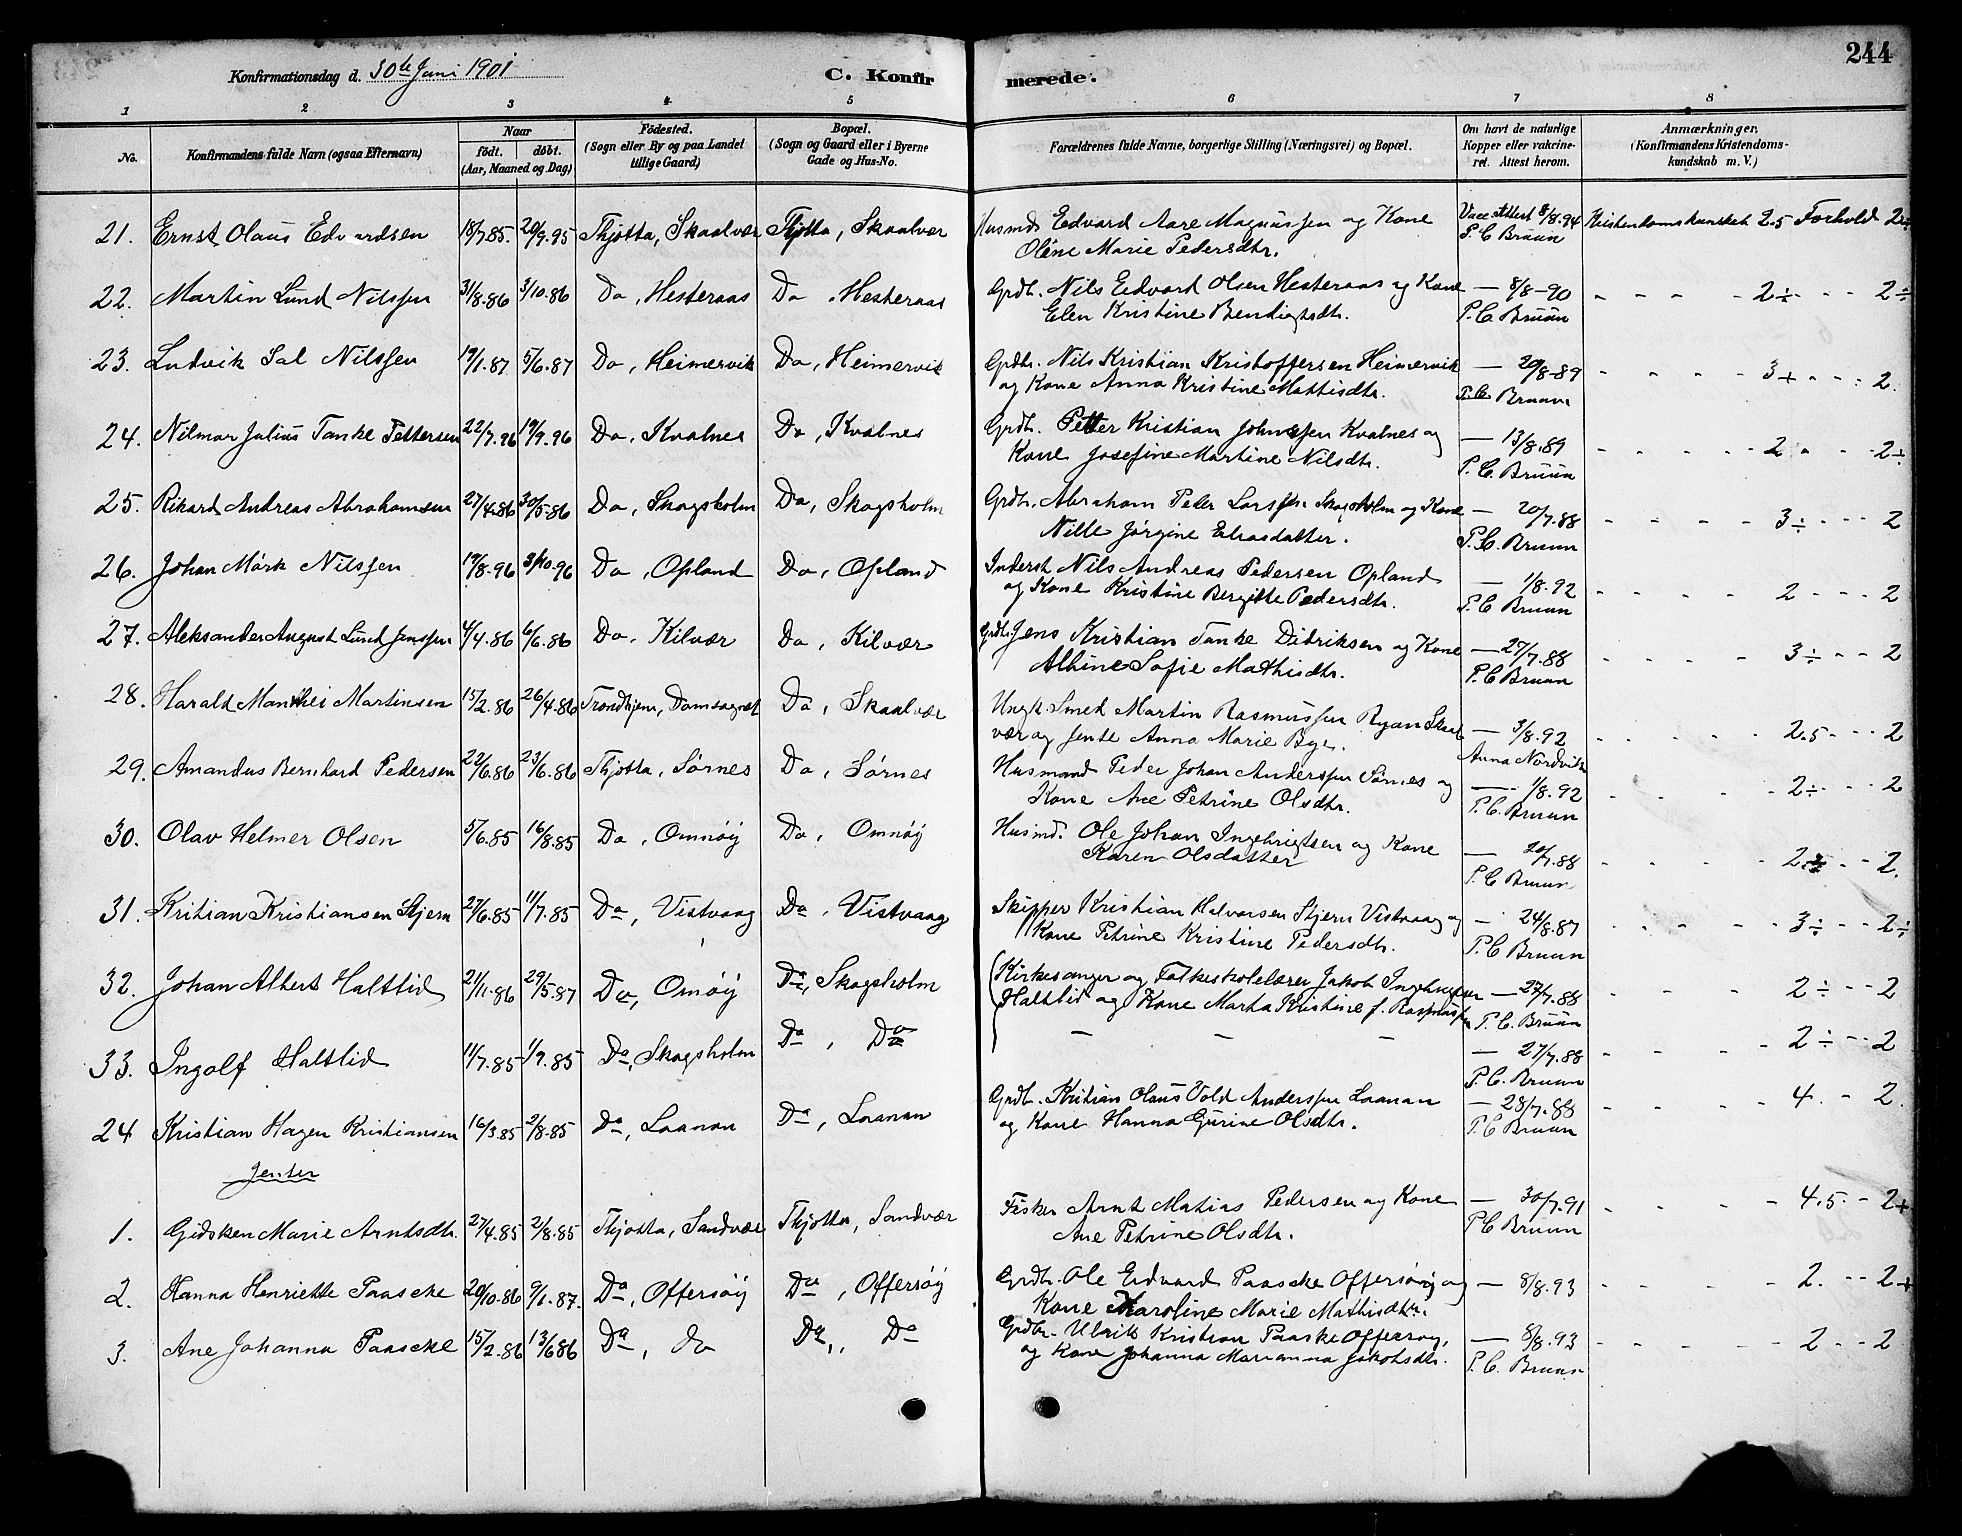 244
Konfirmationsdag d. 30te Juni 1901
C. Konfirmerede.
1 2 3 4 5 6 7 8
No. Konfirmandens fulde Navn (ogsaa Efternavn) Naar født. døbt. (Aar, Maaned og Dag) Födested. (Sogn eller By og paa Landet tillige Gaard) Bopæl. (Sogn og Gaard eller i Byerne Gade og Hus-No. Forældrenes fulde Navne, borgerlige Stilling (Næringsvei) og Bopæl. Om havt de naturlige Kopper eller vakcineret. Attest herom. Anmærkninger. (Konfirmandens Kristendomskundskab m. V.)
21. Ernst Olaus Edvardsen 18/7.85. 20/9.95 Thjøtta, Skaalvær Thjøtta, Skaalvær Husmd. Edvard Aare Magnussen og Kone Vacc.attest 8/8.94 Kristendomskundskab 2.5 Forhold 2÷
Oline Marie Pedersdtr. P. C Bruun
22. Martin Lund Nilssen 31/8.86 3/10.86 Do, Hesteraas Do, Hesteraas Grdbr. Nils Edvard Olsen Hesteraas og Kone — 8/8-90 - - - - 2÷ - - - 2÷
Elen Kristine Bendigtsdtr. P. C Bruun
23. Ludvik Sal Nilssen 19/1.87 5/6.87 Do, Heimervik Do, Heimervik Grdbr. Nils Kristian Kristoffersen Heimervik — 20/8-89 - - - - 3+ - - - 2.
og Kone Anna Kristine Mathisdtr. P.C Bruun
24. Nilmar Julius Tanke Pettersen 22/7.96 19/9.96 Do, Kvalnes Do, Kvalnes Grdbr. Petter Kristian Johnssen Kvalnes og — 13/8.89 - - - - 2 - - - 2÷
Kone Josefine Martine Nilsdtr. P. C. Bruun
25. Rikard Andreas Abrahamsen 27/4.86 30/5.86 Do, Skogsholm Do, Skogsholm Grdbr. Abraham Peder Larssen Skogsholm og Kone — 20/7.88 - - - - 3÷ - - - 2
Nille Jørgine Eliasdatter. P. C. Bruun
26. Johan Mørk Nilssen 19/8.96 3/10.96 Do, Opland Do, Opland Inderst Nils Andreas Pedersen Opland — 1/8.92 - - - - 2 - - - 2
og Kone Kristine Bergitte Pedersdtr. P. C Bruun
27. Aleksander August Lund Jenssen 4/4.86 6/6.86 Do, Kilvær Do, Kilvær Grdbr. Jens Kristian Tanke Didriksen og Kone — 27/7.88 - - - - 3÷ - - 2
Albine Sofie Mathisdtr. P. C Bruun
28. Harald Manthei Martinsen 15/2.86 26/4.86 Trondhjem, Domsognet Do, Skaalvær Ungk. Smed Martin Rasmussen Ryan Skaal — 3/8.92 - - - - 2.5 - - - 2
vær og Jente Anna Marie Bye. Anna Nordvik
29. Amandus Bernhard Pedersen 22/6.86 23/6.86 Thjøtta, Sørnes Do, Sørnes Husmand Peder Johan Anderssen Sørnes og — 1/8.92 - - - - 2÷ - - - 2
Kone Ane Petrine Olsdtr. P. C. Bruun
30. Olav Helmer Olsen 5/6.85 16/8.85 Do, Omnøy Do, Omnøy Husmd. Ole Johan Ingebrigtsen og Kone — 20/7.88 - - - - 2. - - 2.
Karen Olsdatter P. C Bruun
31. Kritian Kristiansen Stjern 27/6.85 11/7.85 Do, Vistvaag Do, Vistvaag Skipper Kristian Halvorsen Stjern Vistvaag og — 24/8.87 - - - - 3÷ - - 2÷
Kone Petrine Kristine Pedersdtr. P. C Bruun
32. Johan Albert Haltlid 21/11.86 29/5.87 Do, Omøy Do, Skogsholm Kirkesanger og Folkeskolelærer Jakob — 27/7.88 - - - - 2÷ - - 2
Haltlid og Kone Marta Kristine f. P. C. Bruun
33. Ingolf Haltlid 11/7.85 1/9.85 Do, Skogsholm Do, Do — — — — 27/7.88 - - - - 2÷ - - 2
P. C. Bruun
24 Kristian Hagen Kristiansen 16/3.85 2/8.85 Do, Laanan Do, Laanan Grdbr. Kristian Olaus Vold Anderssen Laanan — 28/7.88 - - - - 4. - 2.
og Kone Hanna Gurine Olsdtr. P. C Bruun
Jenter
1. Gidsken Marie Arntsdtr. 27/4.85 2/8.85 Thjøtta, Sandvær Thjøtta, Sandvær Fisker Arnt Matias Pedersen og Kone — 30/7.91 - - - - 4.5 - 2+
Ane Petrine Olsdtr. P C Bruun
2. Hanna Henriette Paascke 20/10.86 9/1.87. Do, Offersøy Do, Offersøy Grdbr. Ole Edvard Paascke Offersøy og — 8/8.93 - - - - 2. - - 2+
Kone Karoline Marie Mathisdtr.
3. Ane Johanna Paascke 15/2.86 13/686 Do, do Do, Do Grdbr. Ulrik Kristian Paaske Offersøy, — 8/8.93 - - - - 2 - - 2
og Kone Johanna Marianna Jakobsdtr. P. C. Bruun